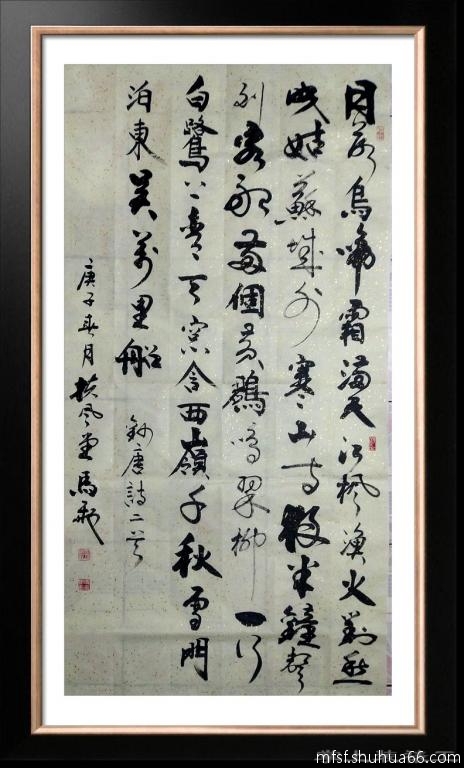 月落烏啼霜滿天江楓漁火對愁
眠姑蘇城外寒山寺夜半鐘聲
到客船兩個黃鸝鳴翠柳一行
白鷺上青天窗含西嶺千秋雪門
泊東吳萬里船 鈔唐詩二首
庚子春月扶風堂馬
mfsf.shuhua66.com